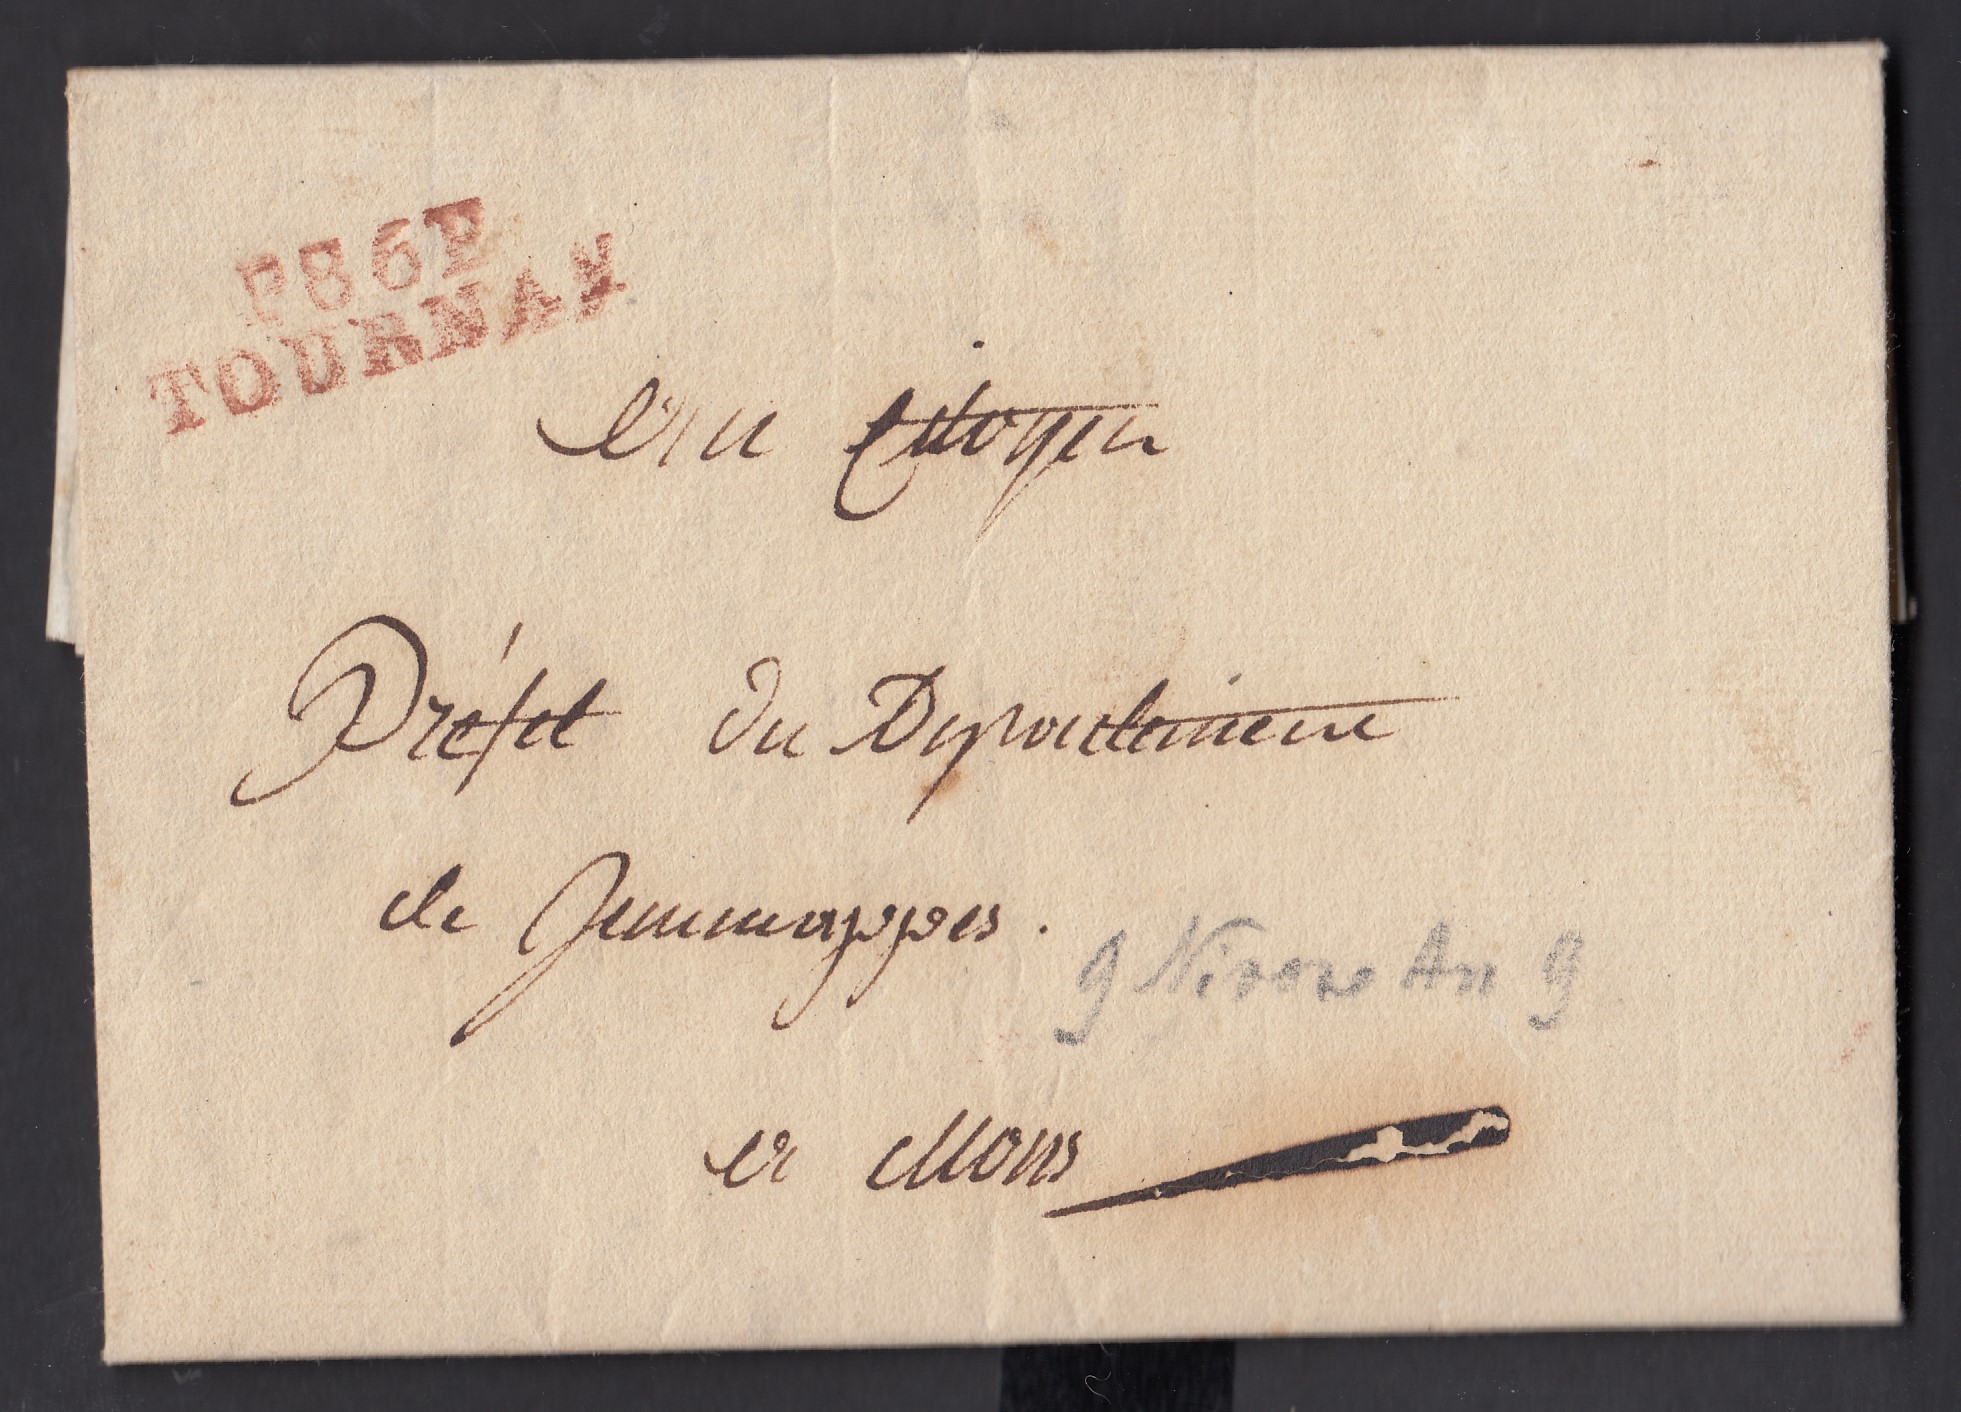 P86P
TOURNAY
Au Citoyen
Préfet du Departement
de Jemmappes.
9 Nivose An 9
a Mons